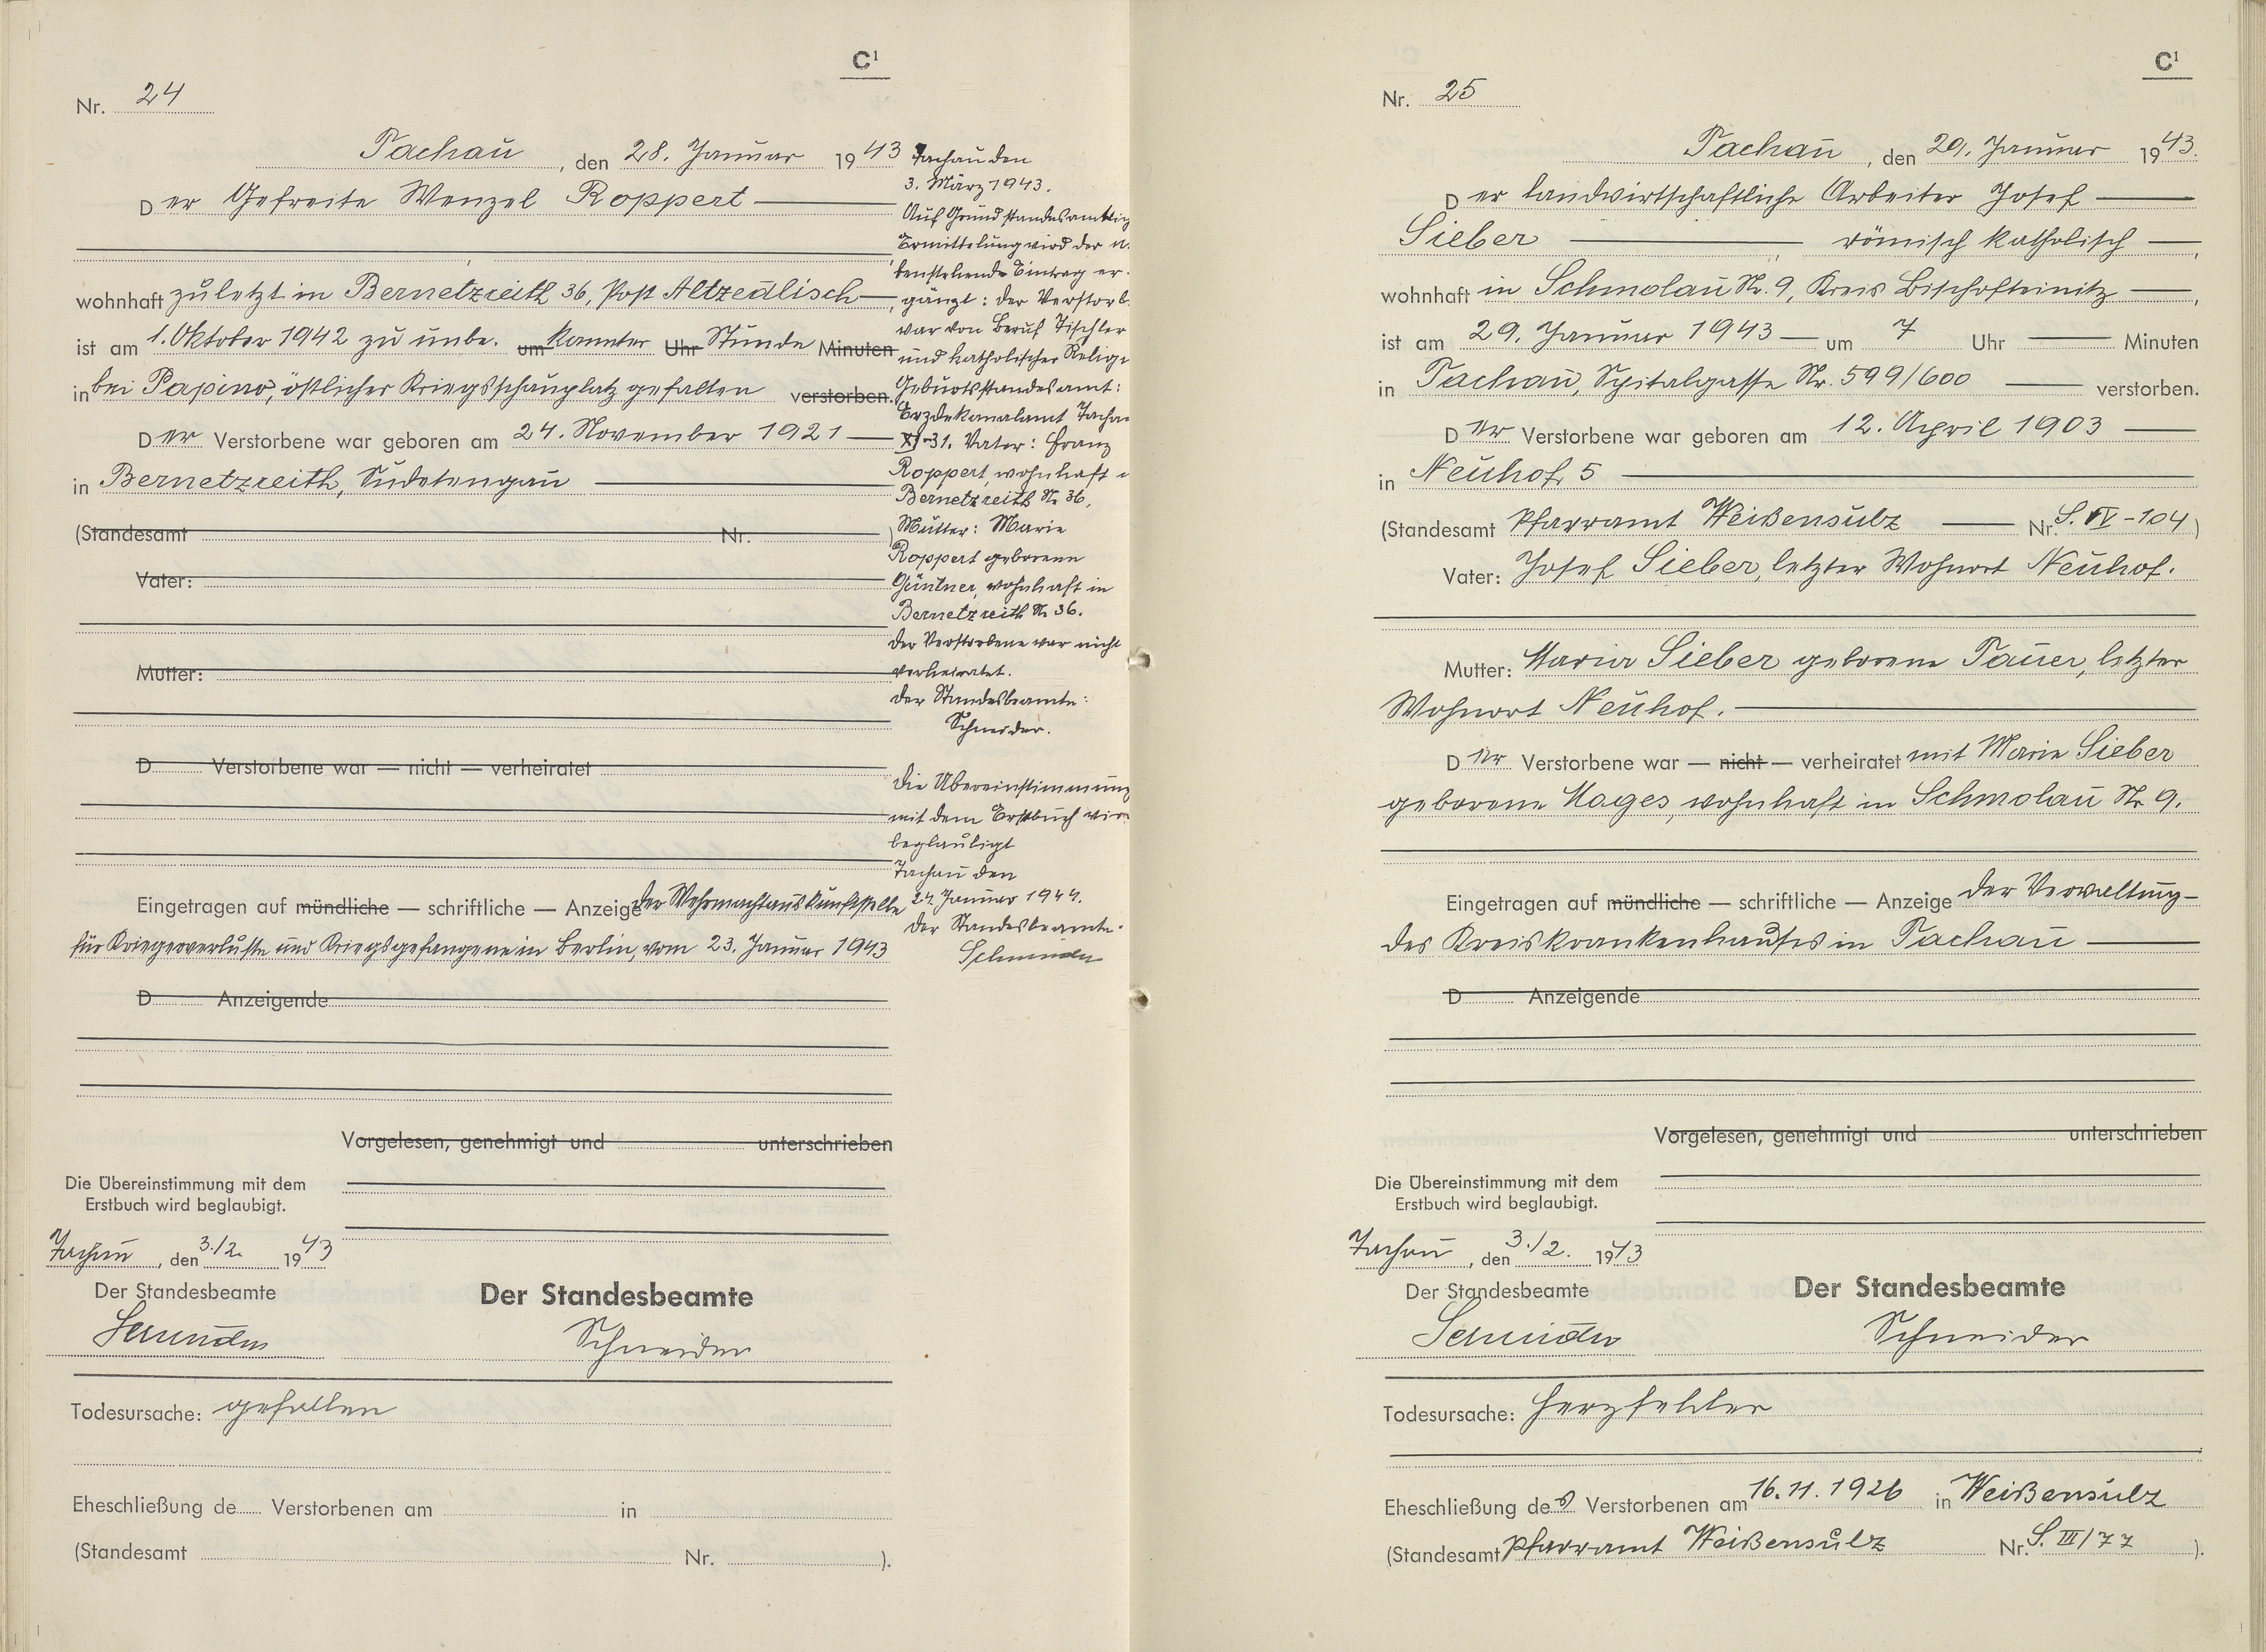 C¹
Nr. 24
Tachau, den 28. Januar 1943
Der Gefreite Wenzel Roppert
wohnhaft zuletzt in Bernetzreith 36, Post Altzedlisch,
ist am 1. Oktober 1942 zu unbe. um kannter Uhr Stunde Minuten
in bei Papino, östlicher Kriegsschauplatz gefallen verstorben.
Der Verstorbene war geboren am 24. November 1921
in Bernetzreith, Sudetengau
(Standesamt Nr. )
Vater:
Mutter:
D Verstorbene war — nicht — verheiratet
Eingetragen auf mündliche — schriftliche — Anzeige der Wehrmachtauskunftstelle
für Kriegerverluste und Kriegsgefangene in Berlin, vom 23. Januar 1943
D Anzeigende
Vorgelesen, genehmigt und unterschrieben
Die Übereinstimmung mit dem
Erstbuch wird beglaubigt.
Tachau, den 3./2. 1943
Der Standesbeamte
Der Standesbeamte
Schneider
Schneider
Todesursache: gefallen
Eheschließung de Verstorbenen am in
(Standesamt Nr. ).
Tachau den
3. März 1943.
Auf Grund standesamtlig
Ermittelung wird der n.
benstehende Eintrag er-
gänzt: der Verstorb.
war von Beruf Tischler
und katholischer Relig
Geburtsstandesamt:
Erzdekanalamt Tacha
XI-31. Vater: Franz
Roppert, wohnhaft
Bernetzreith Nr. 36,
Mutter: Marie
Roppert geborene
Güntner, wohnhaft in
Bernetzreith Nr. 36.
der Verstorbene war nicht
verheiratet.
der Standesbeamte:
Schneider.
die Übereinstimmung
mit dem Erstbuch wir
beglaubigt
Tachau den
24. Januar 1944.
der Standesbeamte.
Schneider
C¹
Nr. 25
Tachau, den 29. Januar 1943.
Der landwirtschaftliche Arbeiter Josef
Sieber römisch katholisch,
wohnhaft in Schmolau Nr. 9, Kreis Bischofteinitz,
ist am 29. Januar 1943 um 7 Uhr Minuten
in Tachau, Spitalgasse Nr. 599/600 verstorben.
Der Verstorbene war geboren am 12. April 1903
in Neuhof 5
(Standesamt Pfarramt Weißensulz Nr. S. IV-104)
Vater: Josef Sieber, letzter Wohnort Neuhof.
Mutter: Maria Sieber geborene Tauer, letzter
Wohnort Neuhof.
Der Verstorbene war — nicht — verheiratet mit Marie Sieber
geborene Hages, wohnhaft in Schmolau Nr. 9.
Eingetragen auf mündliche — schriftliche — Anzeige der Verwaltung-
des Kreiskrankenhauses in Tachau
D Anzeigende
Vorgelesen, genehmigt und unterschrieben
Die Übereinstimmung mit dem
Erstbuch wird beglaubigt.
Tachau, den 3./2. 1943
Der Standesbeamte
Der Standesbeamte
Schneider
Schneider
Todesursache: Herzfehler
Eheschließung des Verstorbenen am 16.11.1926 in Weißensulz
(Standesamt Pfarramt Weißensulz Nr. S. III/77 ).